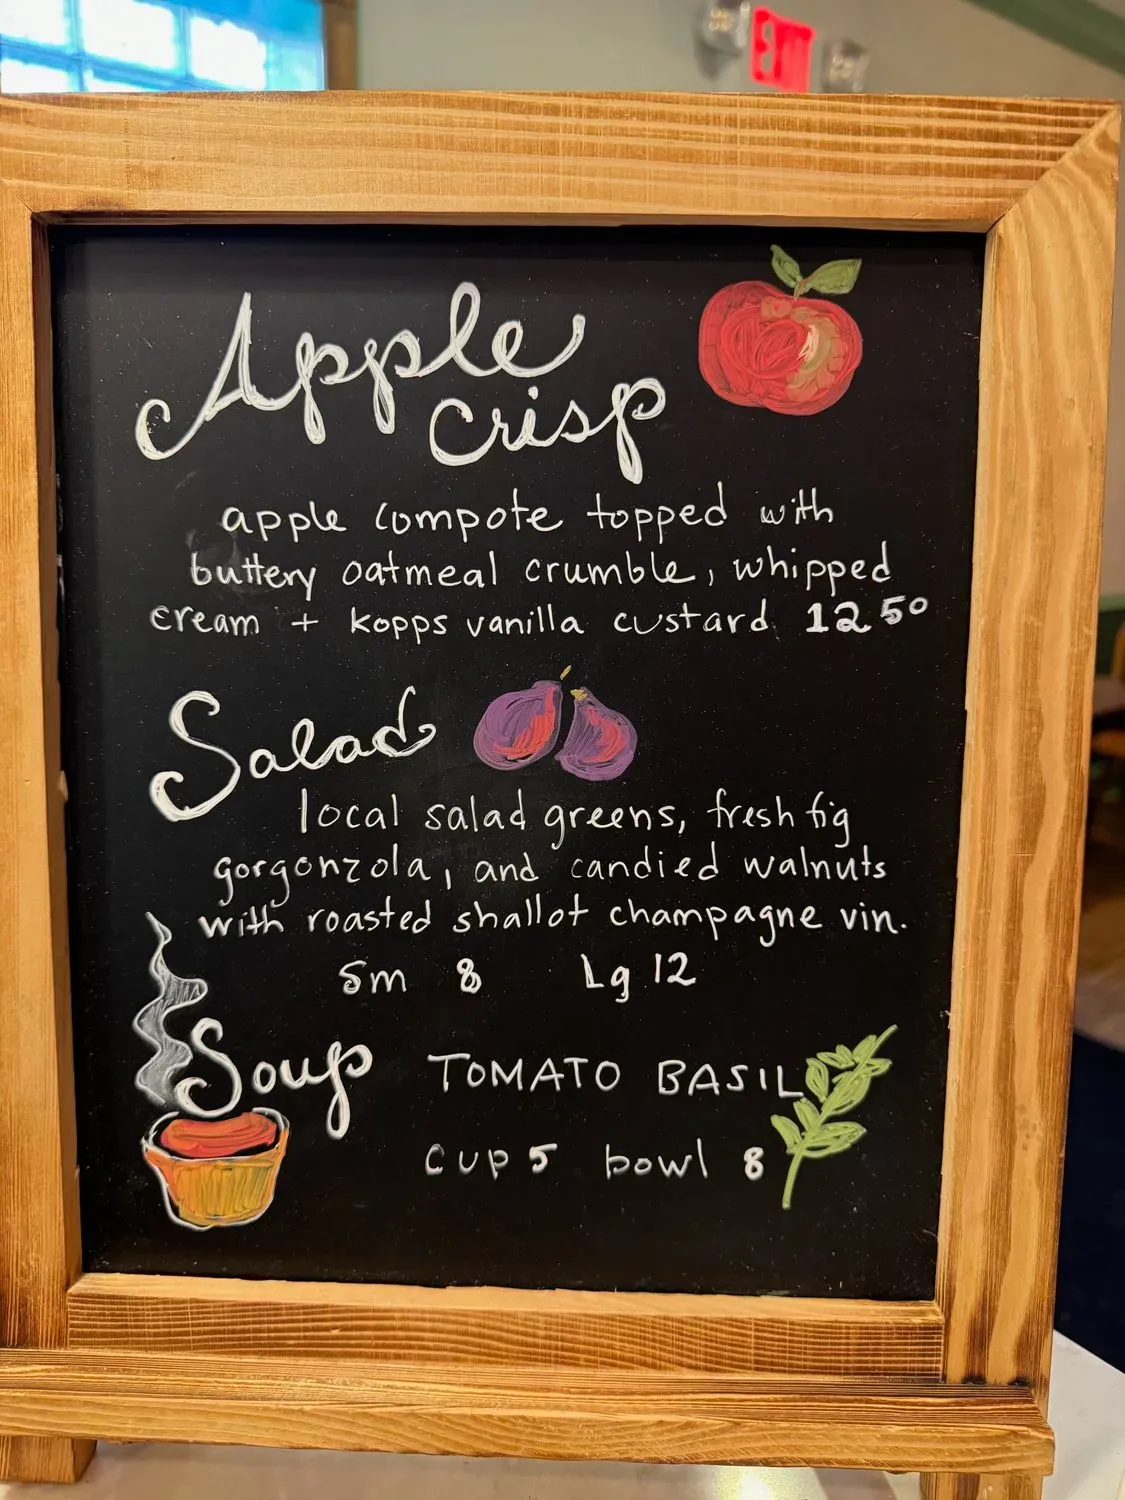 EXIT
Apple
crisp
apple compote topped with
buttery oatmeal crumble, whipped
cream + kopps vanilla custard 12 50
Salad
local salad greens, fresh fig
gorgonzola, and candied walnuts
with roasted shallot champagne vin.
sm 8 Lg 12
Soup TOMATO BASIL
cup 5 bowl 8